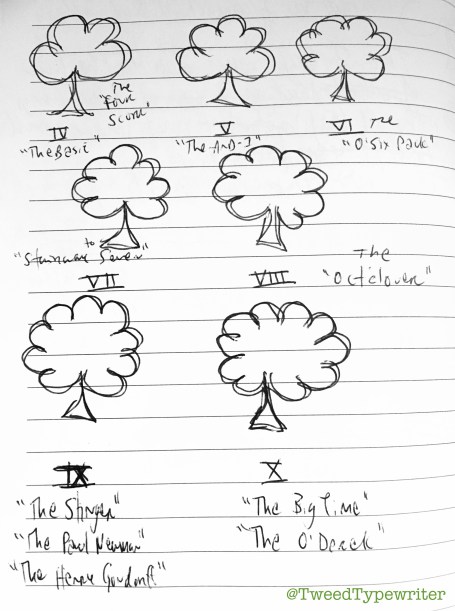 The
"Four
Score"
IV
V
VI The
"The Basic"
"The AND-1"
"O'Six Pack"
to
"Stairway Seven"
The
VII
VIII
IX
X
"The Stinger"
"The Big Time"
"The Paul Newman"
"The O'Dereck"
"The Henry Gondorff"
@TweedTypewriter